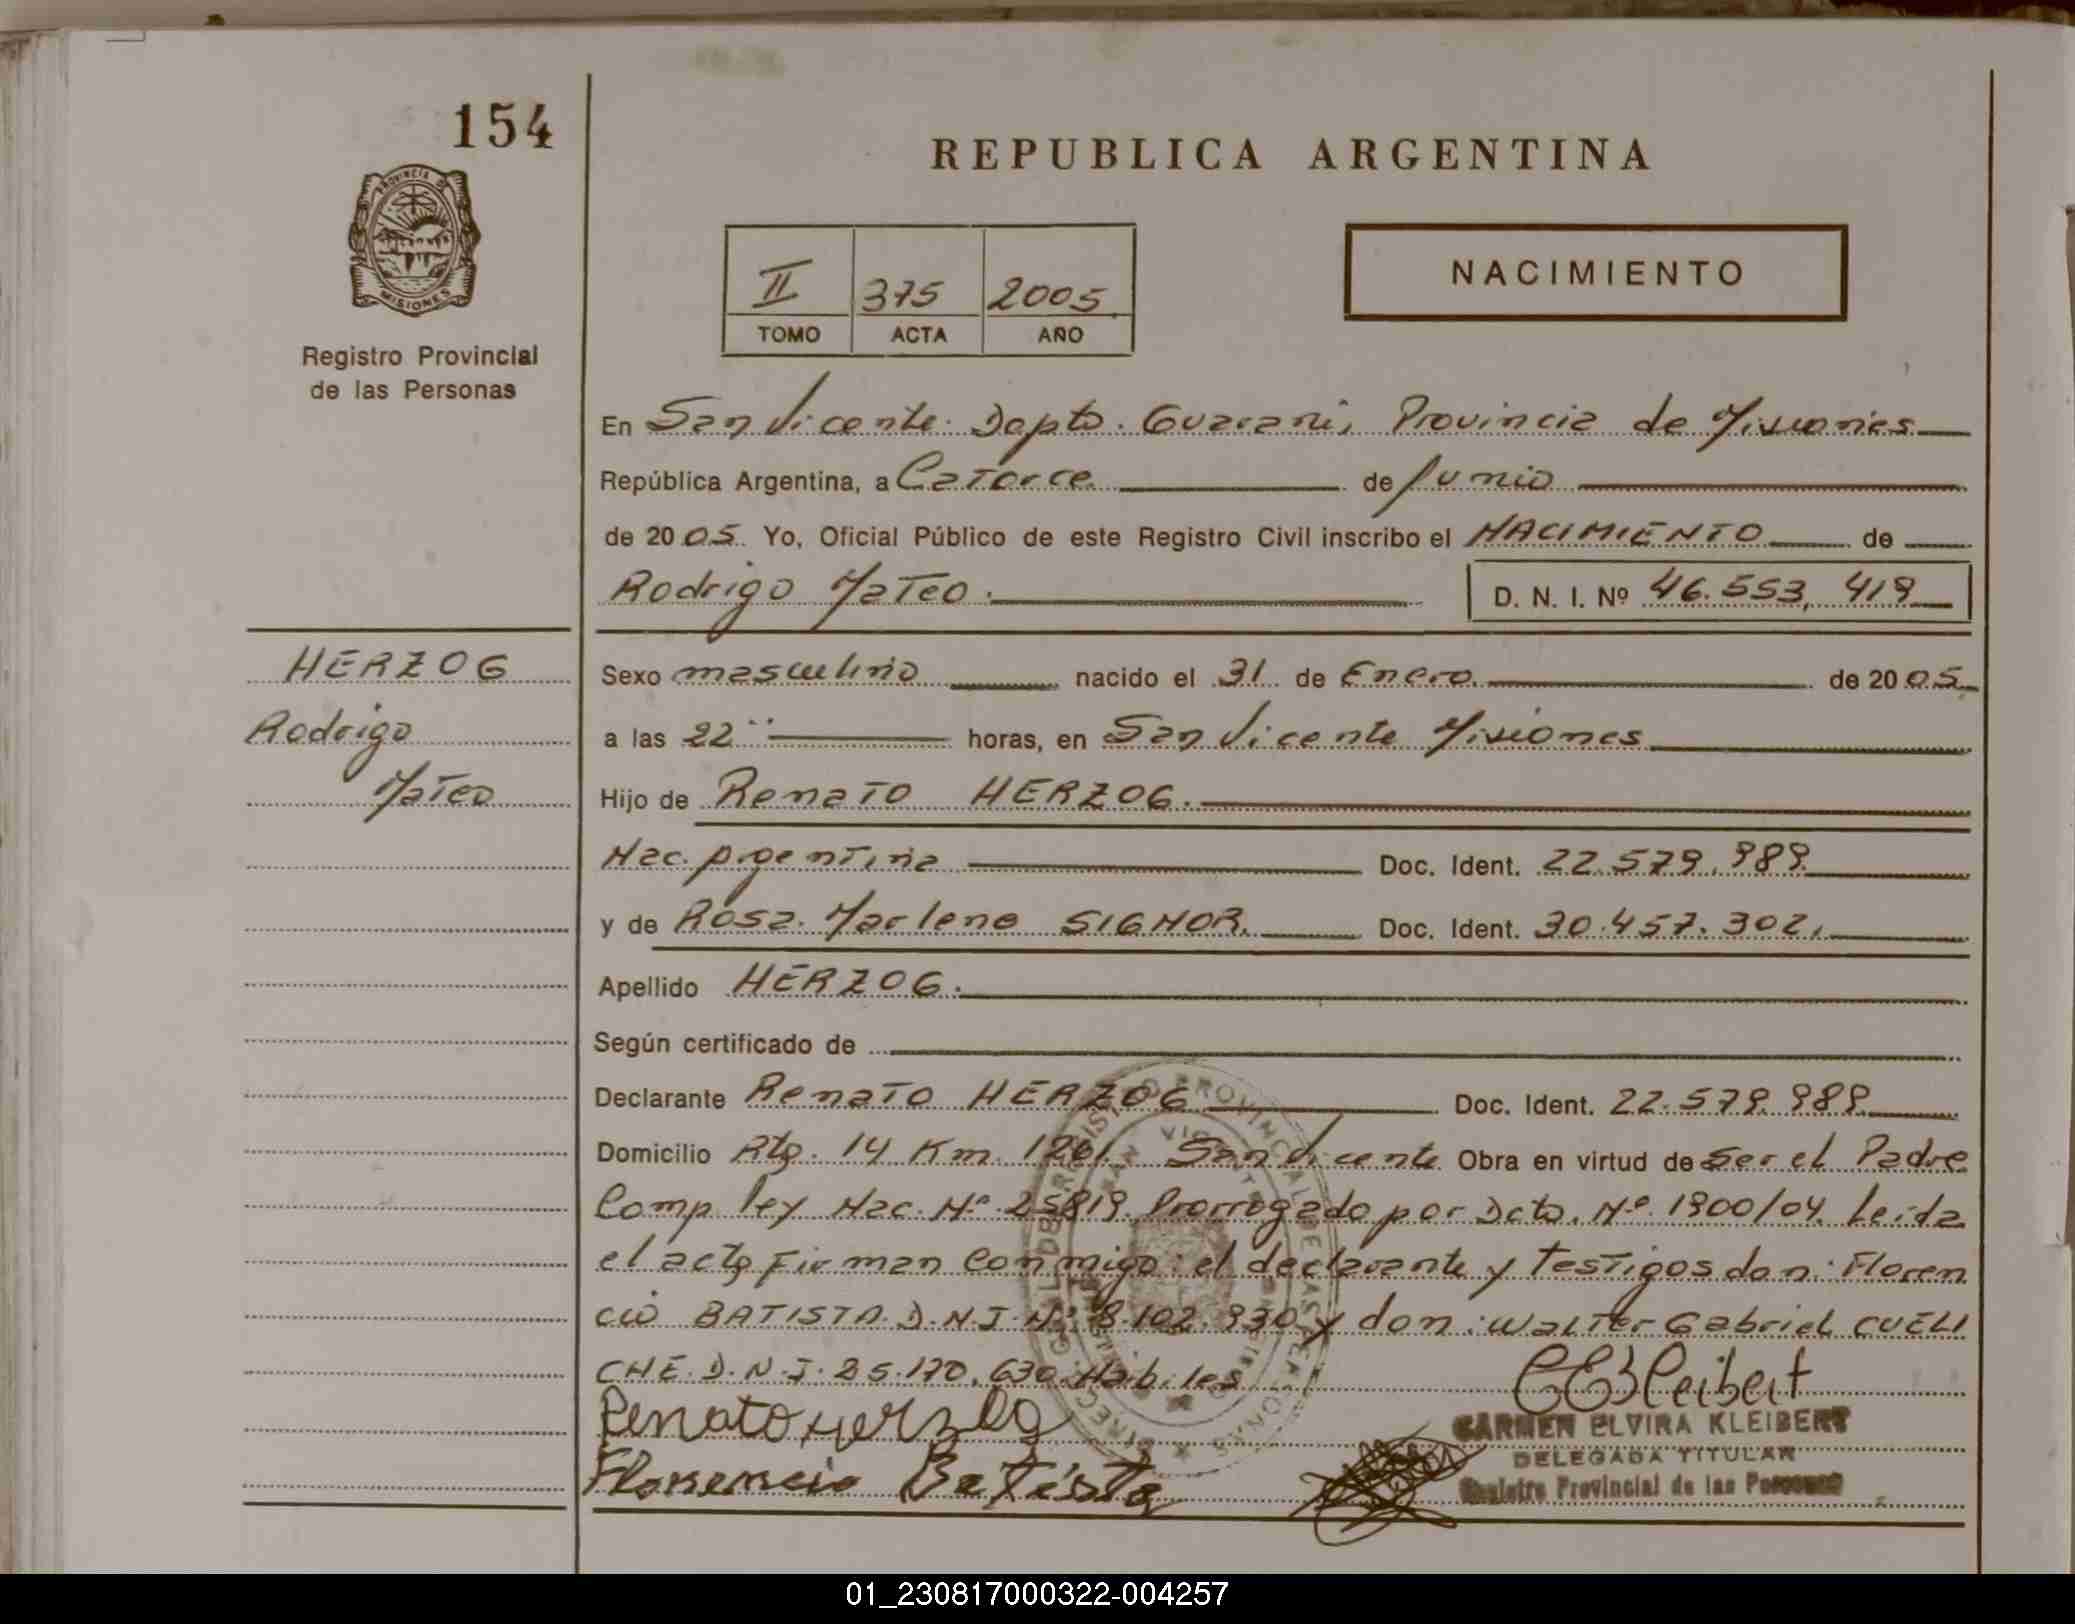 154
REPUBLICA ARGENTINA
PROVINCIA DE
MISIONES
Registro Provincial
de las Personas
II 375 2005
TOMO ACTA AÑO
NACIMIENTO
En San Vicente. Dapto. Guarani, Provincia de Misiones
República Argentina, a Catorce de Junio
de 2005. Yo, Oficial Público de este Registro Civil inscribo el NACIMIENTO de
Rodrigo Mateo. D. N. I. Nº 46.553.419
HERZOG
Rodrigo
Mateo
Sexo masculino nacido el 31 de Enero de 2005
a las 22 horas, en San Vicente Misiones
Hijo de Renato HERZOG.
Nac. Argentina Doc. Ident. 22.579.989
y de Rosa Marlene SIGNOR. Doc. Ident. 30.457.302,
Apellido HERZOG.
Según certificado de
Declarante Renato HERZOG Doc. Ident. 22.579.989
Domicilio Rta. 14 Km. 1261 San Vicente Obra en virtud de Ser el Padre
Comp ley Nac. Nº 25819 Prorrogado por Dcto. Nº 1900/04. Leida
el acta Firman Conmigo: el declarante y Testigos don: Floren
cio BATISTA. D.N.I. Nº 8.102.930 y don: Walter Gabriel CUELI
CHE. D.N.I. 25.170.630 Habiles
Renato Herzog
Florencio Batista
CEKleibert
CARMEN ELVIRA KLEIBERT
DELEGADA TITULAR
Registro Provincial de las Personas
01_230817000322-004257